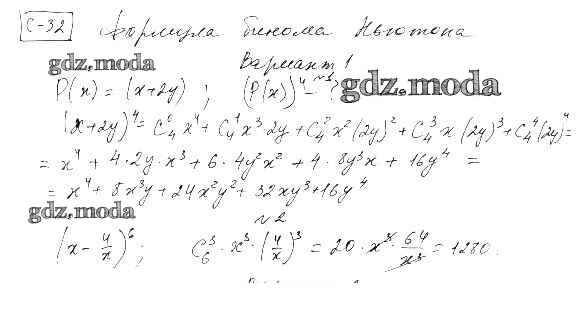 С-32 Формула бинома Ньютона
gdz.moda Вариант 1
№1 gdz.moda
P(x) = (x+2y) ; (P(x))⁴ – ?
(x+2y)⁴ = C₄⁰ x⁴ + C₄¹ x³ · 2y + C₄² x² (2y)² + C₄³ · x (2y)³ + C₄⁴ (2y)⁴ =
= x⁴ + 4 · 2y · x³ + 6 · 4y² x² + 4 · 8y³ x + 16y⁴ =
= x⁴ + 8x³y + 24x²y² + 32xy³ + 16y⁴
gdz.moda №2
(x – 4/x)⁶ ; C₆³ · x³ · (4/x)³ = 20 · x³ · 64/x³ = 1280.